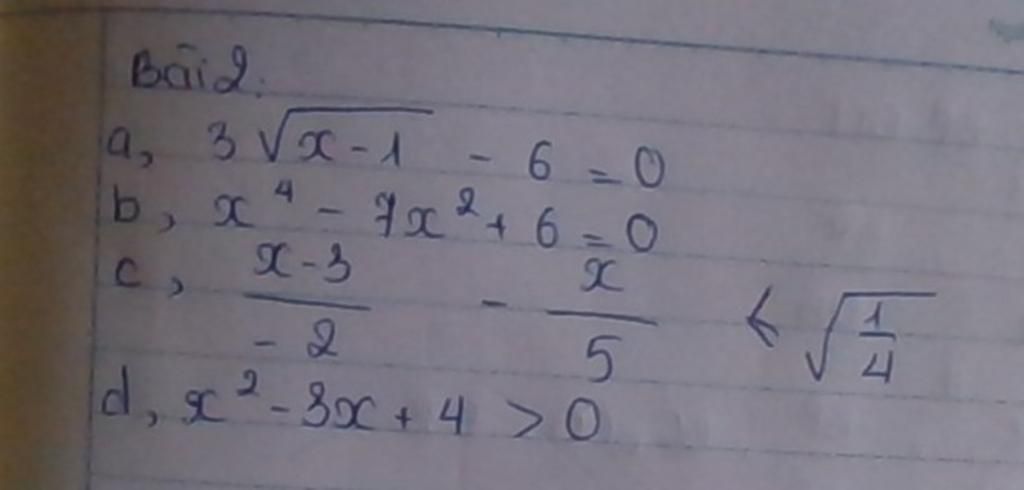 Bài 2:
a, 3√(x-1) - 6 = 0
b, x⁴ - 7x² + 6 = 0
c, (x-3)/(-2) - x/5 < √(1/4)
d, x² - 3x + 4 > 0